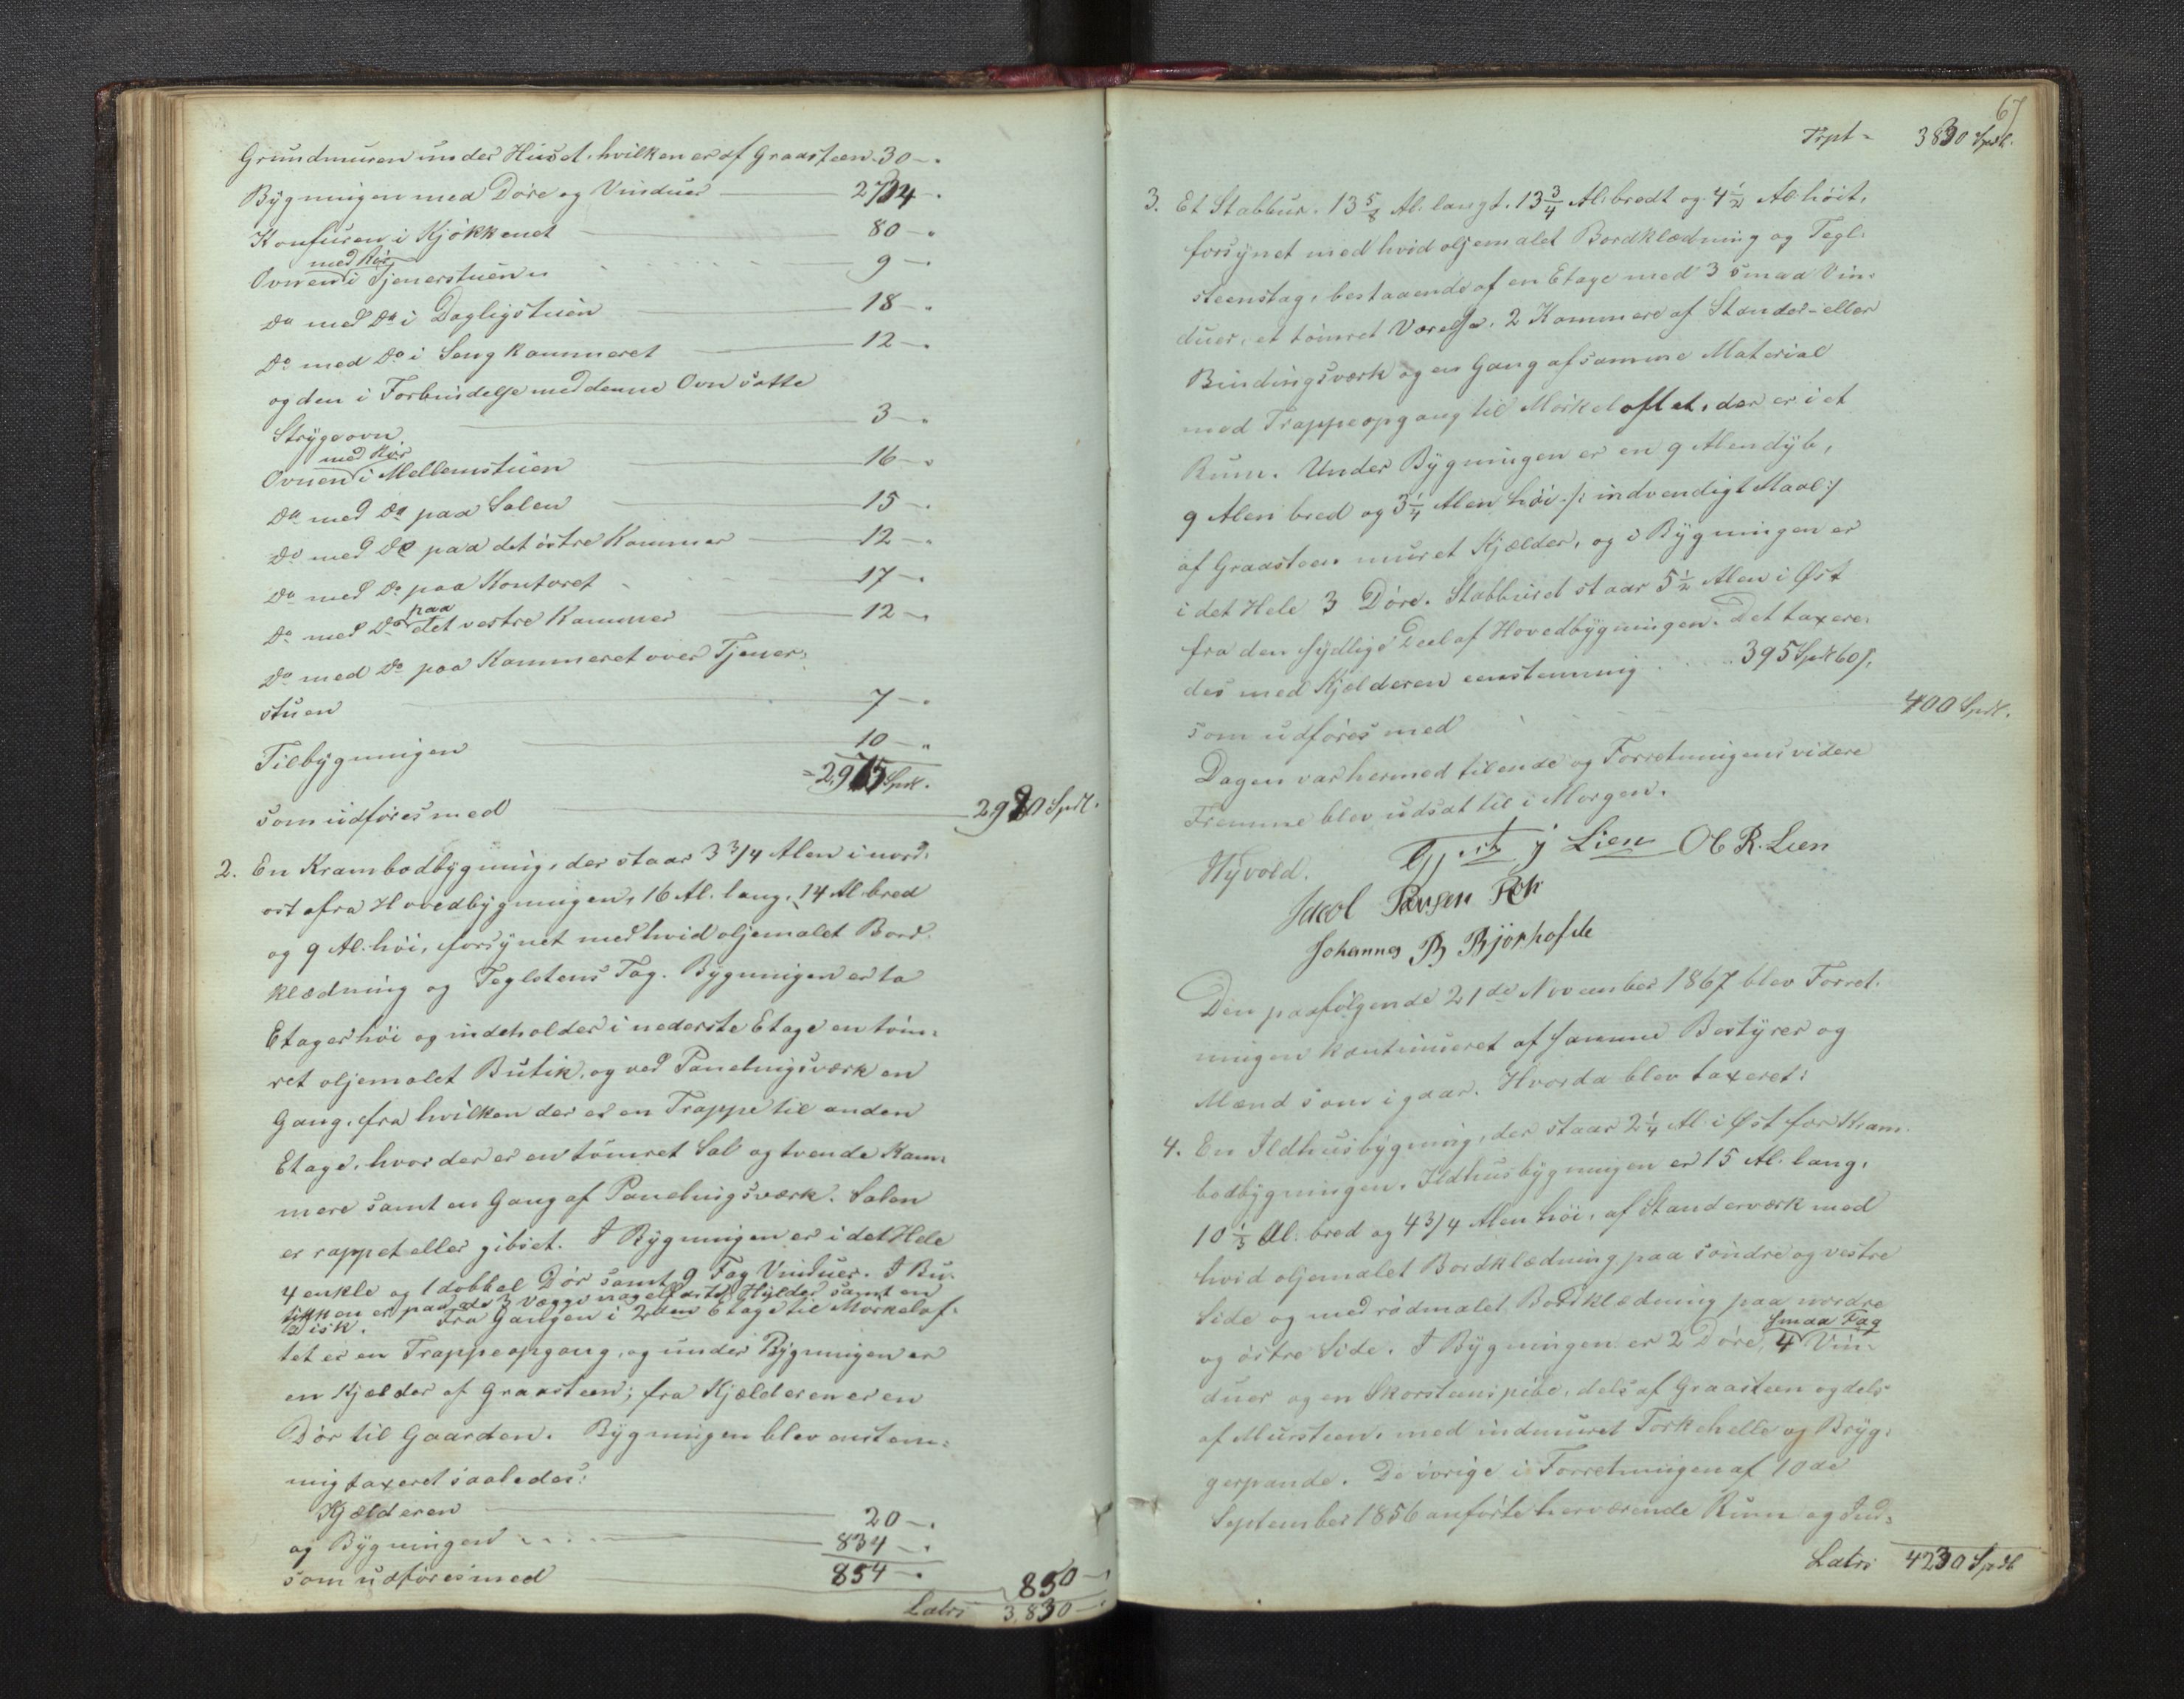 Grundmuren under Huset, hvilken er af Graasteen 30 – "
Bygningen med Döre og Vinduer 2734 – "
Komfuren i Kjökkenet 80 – "
med Rör
Ovnen i Tjenerstuen 9 – "
Do med Do i Dagligstuen 18 – "
Do med Do i Sengkammeret 12 – "
og den i Forbindelse med denne Ovn satte
Strygeovn 3 – "
med Rör
Ovnen i Mellemstuen 16 – "
Do med Do paa Salen 15 – "
Do med Do paa det östre Kammer 12 – "
Do med Do paa Kontoret 17 – "
paa
Do med Do det vestre Kammer 12 – "
Do med Do paa Kammeret over Tjener-
stuen 7 – "
Tilbygningen 10 – "
= 2975 Spd.
som udföres med 2980 Spdl.
2. En Krambodbygning, der staar 3 3/4 Alen i nord-
ost afra Hovedbygningen, 16 Al. lang, 14 Al. bred
og 9 Al. höi, forsynet med hvid oljemalet Bord-
klædning og Teglstens Tag. Bygningen er to
Etager höi og indeholder i nederste Etage en töm-
ret oljemalet Butik, og ved Panelingsværk en
Gang, fra hvilken der er en Trappe til anden
Etage, hvor der er en tömret Sal og tvende Kam-
mere samt en Gang af Panelingsværk. Salen
er rappet eller gibset. I Bygningen er i det Hele
4 enkle og 1 dobbel Dör samt 9 Fag Vinduer. I Bu-
tikken er paa de 3 Vægge nagelfaste Hylder samt en
Disk. Fra Gangen i 2den Etage til Mörkelof-
tet er en Trappeopgang, og under Bygningen er
en Kjelder af Graasteen; fra Kjælderen er en
Dör til Gaarden. Bygningen blev enstem-
mig taxeret saaledes:
Kjælderen 20 – "
og Bygningen 834 – "
som udföres med 854 – "
850 – "
Latus 3830 – "
67
Trpt = 3830 Spdl.
3. Et Stabbur, 13 5/8 Al. langt, 13 3/4 Al. bredt og 4 1/2 Al. höit,
forsynet med hvid oljemalet Bordklædning og Tegl-
steenstag, bestaaende af en Etage med 3 smaa Vin-
duer, et tömret Værelse, 2 Kammere af Stander- eller
Bindingsværk og en Gang af samme Material
med Trappeopgang til Mörkeloftet, der er i et
Rum. Under Bygningen er en 9 Alen dyb,
9 Alen bred og 3 1/4 Alen höi /: indvendigt Maal :/
af Graasteen muret Kjælder, og i Bygningen er
i det Hele 3 Döre. Stabburet staar 5 1/2 Alen i Øst
fra den sydlige Deel af Hovedbygningen. Det taxere-
des med Kjælderen eenstemmig 395 Spd 60 s.
som udföres med 400 Spdl.
Dagen var hermed tilende og Forretningens videre
Fremme blev udsat til i Morgen.
Hyvold. Gjert J Lien Ol R. Lien
Jacob Roh
Johannes B Björhofde
Den paafölgende 21de November 1867 blev Forret-
ningen kontinueret af samme Bestyrer og
Mænd som igaar. Hvorda blev taxeret:
4. En Ildhusbygning, der staar 2 1/4 Al. i Øst for Kram-
bodbygningen. Ildhusbygningen er 15 Al. lang,
10 1/3 Al. bred og 4 3/4 Alen höi, af Standerværk med
hvid oljemalet Bordklædning paa söndre og vestre
Side og med rödmalet Bordklædning paa nordre
smaa Fag
og östre Side. I Bygningen er 2 Döre, 4 Vin-
duer og en Skorsteenspibe, dels af Graasteen og dels
af Mursteen, med indmuret Törkehelle og Bryg-
gerpande. De övrige i Forretningen af 10de
September 1856 anförte herværende Rum og Ind-
Latus 4230 Spdl